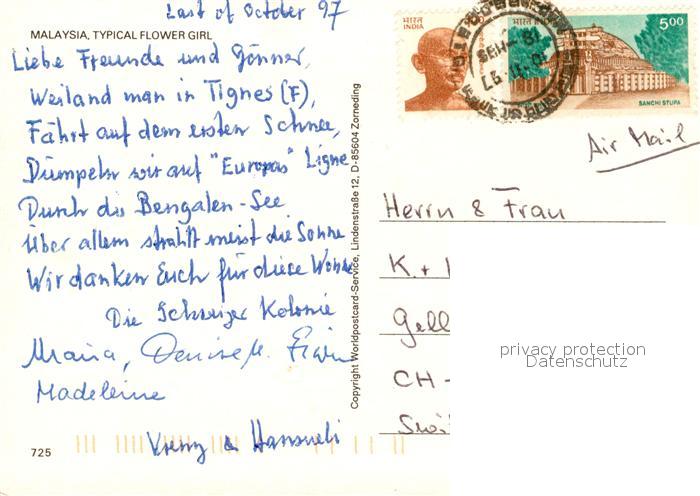 Last of October 97
MALAYSIA, TYPICAL FLOWER GIRL
Liebe Freunde und Gönner,
Weiland man in Tignes (F),
Fährt auf dem ersten Schnee,
Dümpeln wir auf "Europas" Ligne
Durch die Bengalen-See
Über allem strahlt meist die Sonne
Wir danken Euch für diese Wonne
Die Schweizer Kolonie
Maria, Denise M. Erwin
Madeleine
Vreny & Hansueli
725
Copyright Worldpostcard-Service, Lindenstraße 12, D-85604 Zorneding
भारत
INDIA
भारत INDIA
500
SANCHI STUPA
Air Mail
Herrn & Frau
K. +
Gell
CH -
privacy protection
Datenschutz